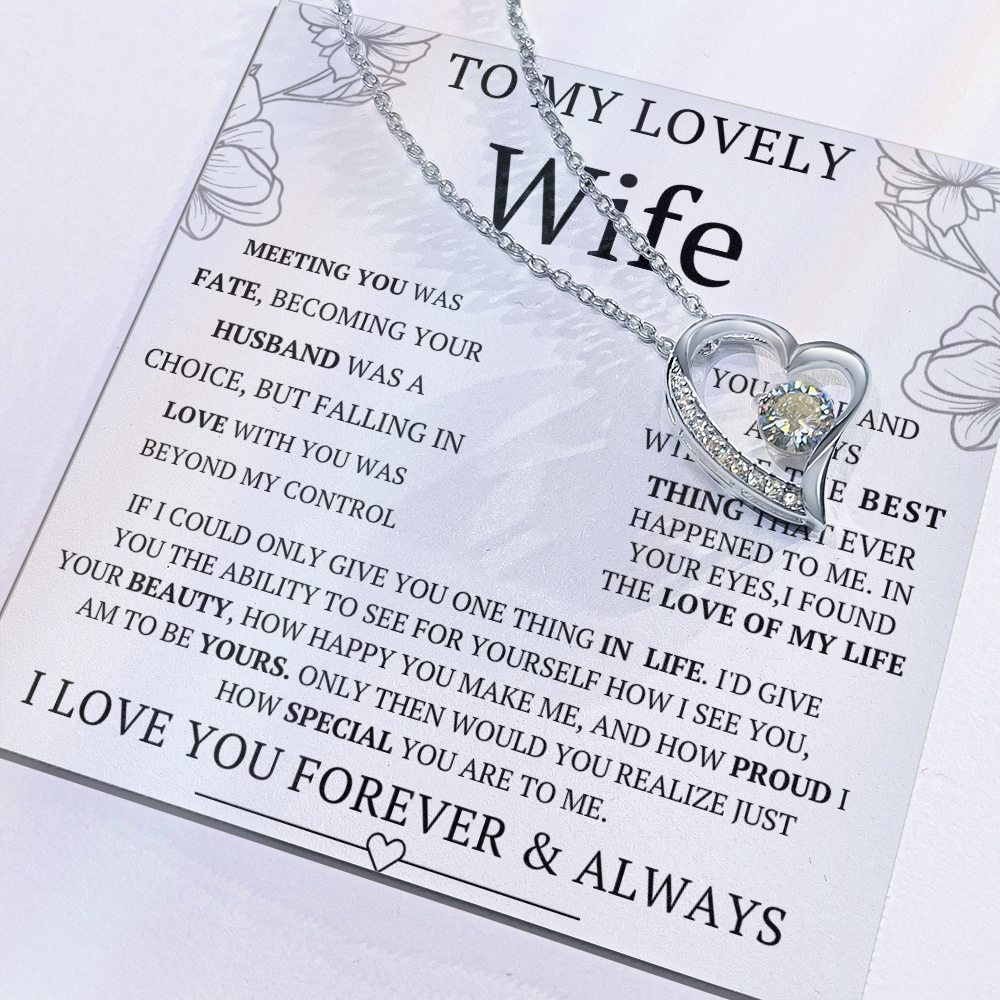 TO MY LOVELY
Wife
MEETING YOU WAS
FATE, BECOMING YOUR
HUSBAND WAS A
CHOICE, BUT FALLING IN
LOVE WITH YOU WAS
BEYOND MY CONTROL
YOU AND
THE BEST
THING THAT EVER
HAPPENED TO ME. IN
YOUR EYES,I FOUND
THE LOVE OF MY LIFE
IF I COULD ONLY GIVE YOU ONE THING IN LIFE. I'D GIVE
YOU THE ABILITY TO SEE FOR YOURSELF HOW I SEE YOU,
YOUR BEAUTY, HOW HAPPY YOU MAKE ME, AND HOW PROUD I
AM TO BE YOURS. ONLY THEN WOULD YOU REALIZE JUST
HOW SPECIAL YOU ARE TO ME.
I LOVE YOU FOREVER & ALWAYS